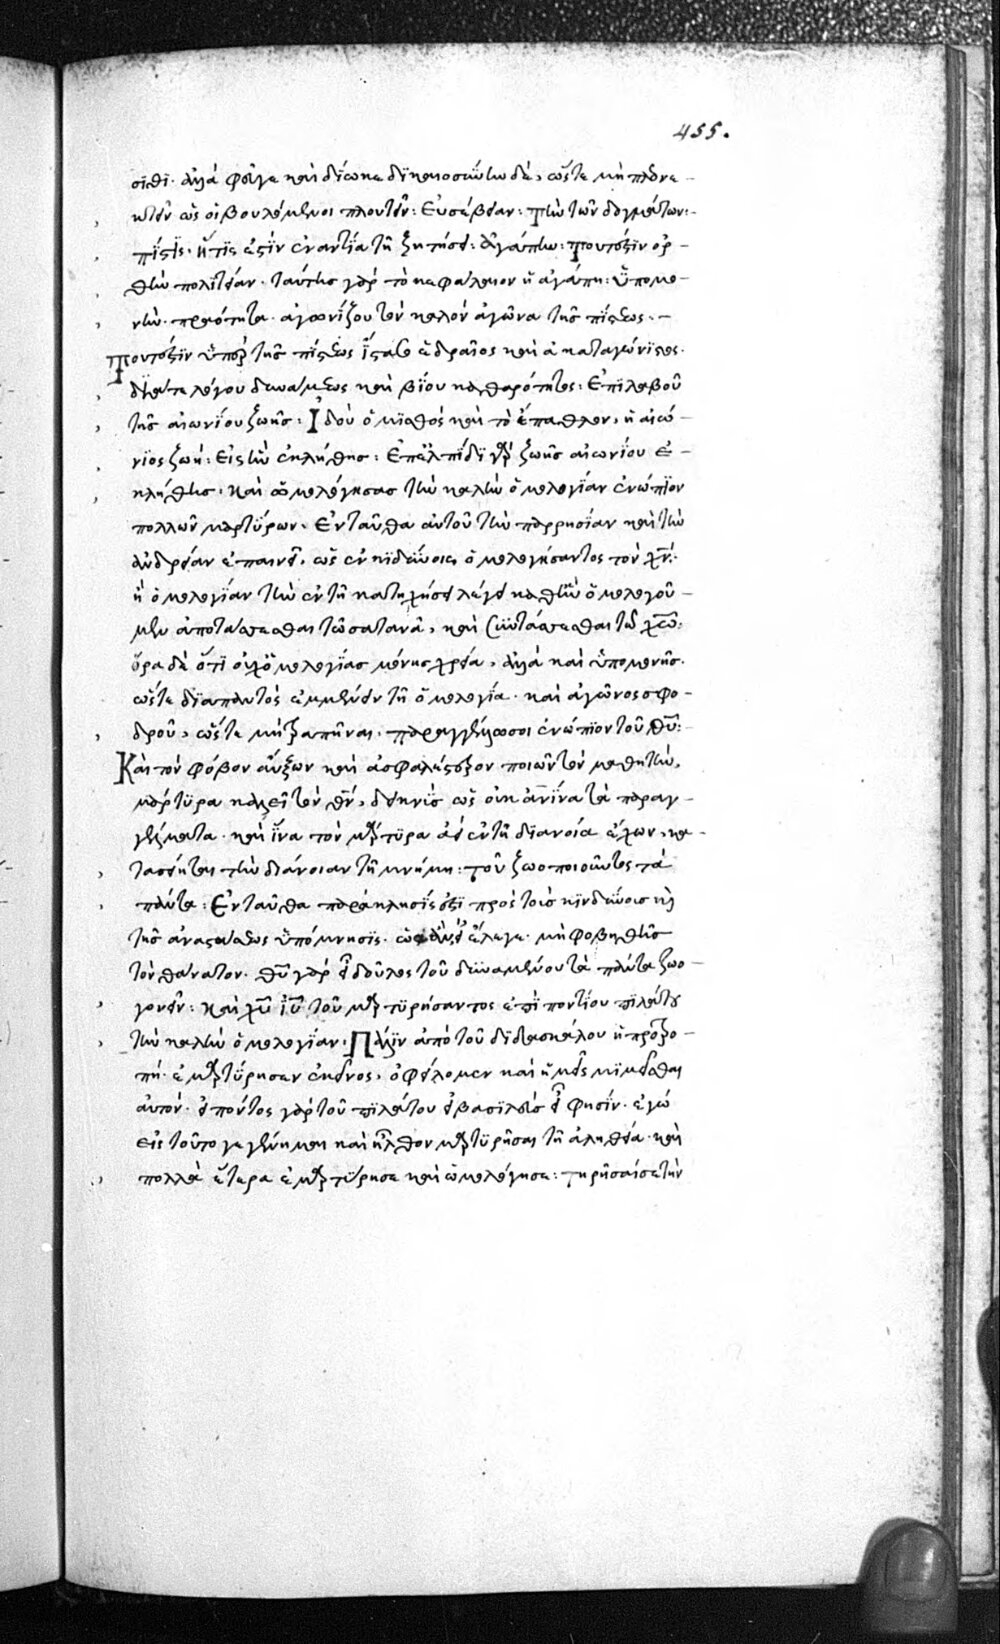 455.
σίθι· ἀλλὰ φεῦγε καὶ δίωκε δϊκαιοσύνην δὲ, ὥστε μὴ πλεονε-
κτεῖν ὡς οἱ βουλόμενοι πλουτεῖν: Εὐσέβειαν: τὴν τῶν δογμάτων:-
πίστϊν· ἥτϊς ἐστὶν ἐναντία τῆ ζητήσει: ἀγάπην: τουτέστϊν ὀρ-
θὴν πολϊτείαν· ταύτης γὰρ τὸ κεφάλαιον ἡ ἀγάπη: ὑπομο-
νὴν· πραότητα· ἀγωνίζου τὸν καλὸν ἀγῶνα τῆς πίστεως·-
τουτέστϊν ὑπὲρ τῆς πίστεως ἵστασο ἑδραῖος καὶ ἀκαταγώνϊστος·
διά τε λόγου δυνάμεως καὶ βίου καθαρότητος: Ἐπϊλαβοῦ
τῆς αἰωνίου ζωῆς: Ἰδοὺ ὁ μϊσθὸς καὶ τὸ ἔπαθλον, ἡ αἰώ-
νϊος ζωή: Εἰς ἣν ἐκλήθης: Ἐπ' ἐλπίδϊ γὰρ ζωῆς αἰωνίου ἐ-
κλήθης· Καὶ ὡμολόγησας τὴν καλὴν ὁμολογίαν ἐνώπϊον
πολλῶν μαρτύρων· Ἐνταῦθα αὐτοῦ τὴν παρρησίαν καὶ τὴν
ἀνδρείαν ἐπαινεῖ, ὡς ἐν κϊνδύνοις ὁμολογήσαντος τὸν χν:
ἢ ὁμολογίαν τὴν ἐν τῆ κατηχήσει λέγει καθ' ἣν ὁμολογοῦ-
μεν ἀποτάσσεσθαι τῶ σατανᾶ, καὶ συντάσσεσθαι τῶ χω:
ὅρα δὲ ὅτϊ οὐχ ὁμολογίας μόνης χρεία, ἀλλὰ καὶ ὑπομονῆς·
ὥστε δϊαπαντὸς ἐμμένειν τῆ ὁμολογία· καὶ ἀγῶνος σφο-
δροῦ, ὥστε μὴ τραπῆναι· παραγγέλλω σοι ἐνώπϊον τοῦ θυ:
Καὶ τὸν φόβον αὔξων καὶ ἀσφαλέστερον ποιῶν τὸν μαθητὴν,
μάρτυρα καλεῖ τὸν θν, δεικνὺς ὡς οὐκ ἀνϊνα τὰ παραγ-
γέλματα· καὶ ἵνα τὸν μάρτυρα ἀεὶ ἐν τῆ δϊανοία ἔχων, κα-
τασείηται τὴν δϊάνοιαν τῆ μνήμη: τοῦ ζωοποιοῦντος τὰ
πάντα: Ἐνταῦθα παράκλησίς ἐστϊ πρὸς τοὺς κϊνδύνους καὶ
τῆς ἀναστάσεως ὑπόμνησϊς· ἔλεγε· μὴ φοβηθῆς
τὸν θάνατον· θυ γὰρ εἶ δοῦλος τοῦ δυναμένου τὰ πάντα ζωο-
γονεῖν: Καὶ χυ ιυ τοῦ μαρτυρήσαντος ἐπὶ ποντίου πϊλάτου
τὴν καλὴν ὁμολογίαν· Πάλϊν ἀπὸ τοῦ δϊδασκάλου ἡ προτρο-
πή· ἐμαρτύρησεν ἐκεῖνος, ὀφείλομεν καὶ ἡμεῖς μϊμεῖσθαι
αὐτόν· εἰπόντος γὰρ τοῦ πϊλάτου εἰ βασϊλεὺς εἶ φησΐν· ἐγώ
εἰς τοῦτο γεγέννημαι καὶ ἦλθον μαρτυρῆσαι τῆ ἀληθεία· καὶ
πολλὰ ἕτερα ἐμαρτύρησε καὶ ὡμολόγησε: τηρῆσαί σε τὴν